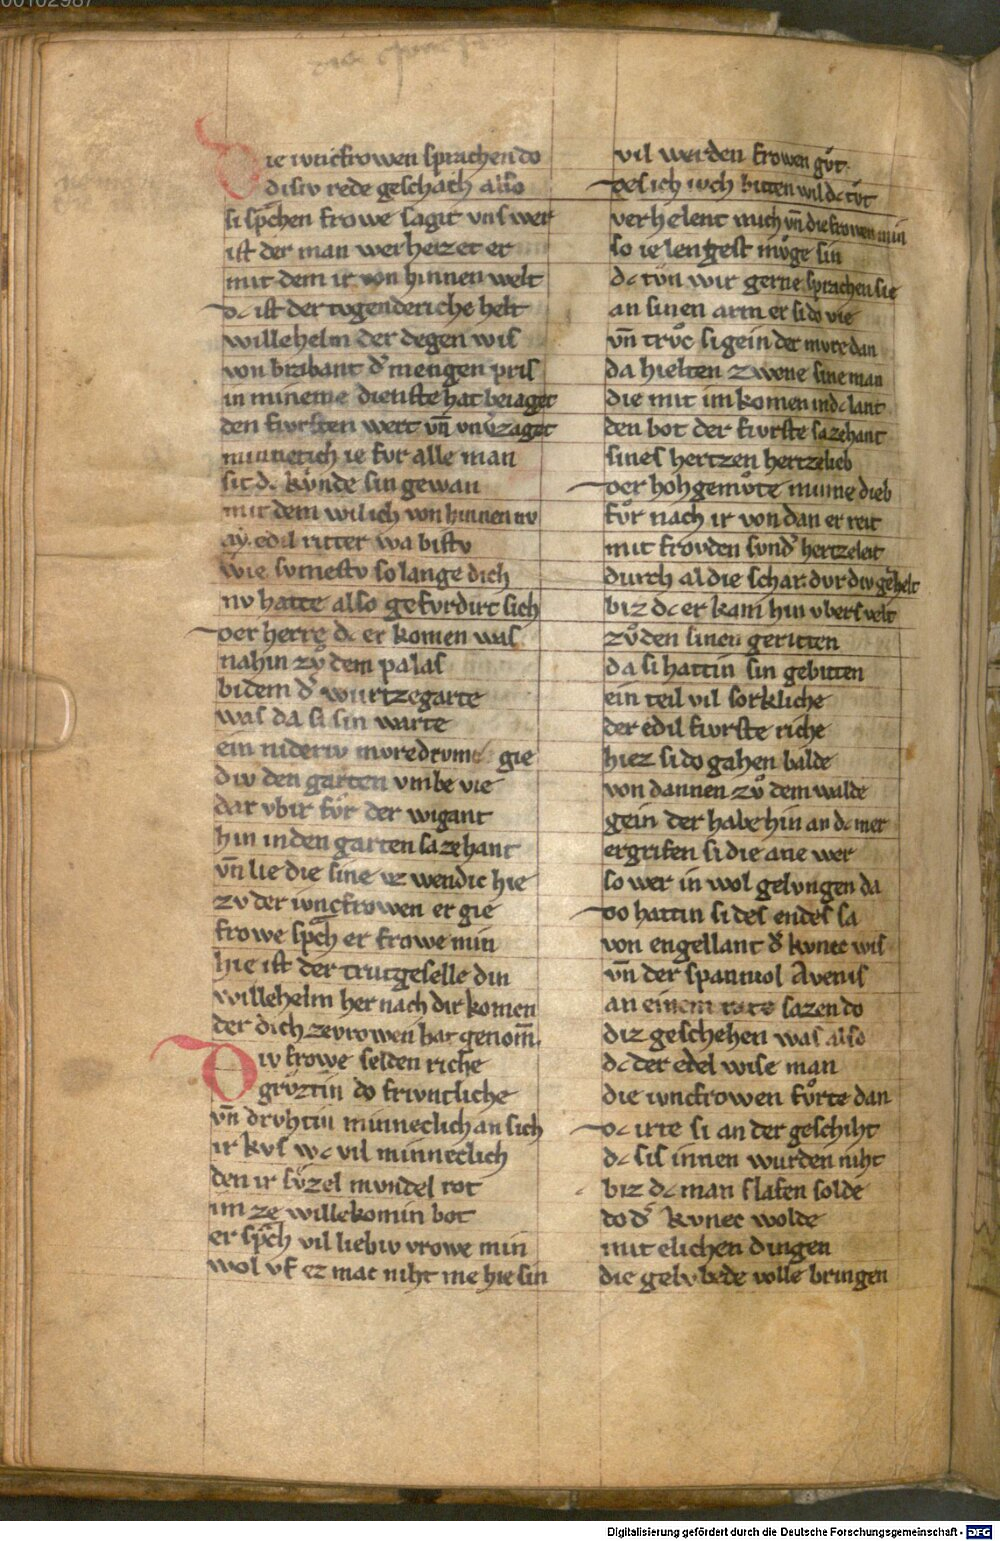 Die iuncfrowen sprachen do
disiv rede geschach also
si sp͛chen frowe sagit vns wer
ist der man wer heizet er
mit dem ir von hinnen welt
dc ist der tvgenderiche helt
willehelm der degen wis
von brabant d͛ mengen pris
in mineme dienste hat beiaget
den fvrsten wert vn̄ vnv͛zaget
minnerich ie fvr alle man
sit dc kv̍nde sin gewan
mit dem wil ich von hinnen nv
ay edil ritter wa bistv
wie svmestv so lange dich
nv hatte also gefvrdirt sich
der herre dc er komen was
nahin zvͦ dem palas
bi dem d͛ wurtzegarte
was da si sin warte
ein nideriv mvre drvme gie
div den garten vmbe vie
dar vbir fvͦr der wigant
hin in den garten sazehant
vn̄ lie die sine vzwendic hie
zv der iuncfrowen er gie
frowe sp͛ch er frowe min
hie ist der trutgeselle din
willehelm her nach dir komen
der dich zevrowen hat genom̄.
Div frowe selden riche
grvͦztin do frivntliche
vn̄ drvhtin minneclich an sich
ir kvs wc vil minneclich
den ir sv̍zel mvndel rot
im ze willekomin bot
er sp͛ch vil liebiv vrowe min
wol vf ez mac niht me hie sin
vil werden frowen gvͦt
des ich ivch bitten wil dc tvͦt
verhelent mich vn̄ die frowen min
so ie lengest mvge sin
dc tvͦn wir gerne sprachen sie
an sinen arm er si do vie
vn̄ trvͦc si gein der mvre dan
da hielten zwene sine man
die mit im komen in dc lant
den bot der fvrste sazehant
sines hertzen hertzelieb
der hohgemvͦte minne dieb
fvͦr nach ir von dan er reit
mit frovden svnd͛ hertzeleit
durch al die schar dvr div gezhelt
biz dc er kam hin vbers velt
zvͦ den sinen geritten
da si hattin sin gebitten
ein teil vil sorkliche
der edil fvrste riche
hiez si do gahen balde
von dannen zvͦ dem walde
gein der habe hin an dc mer
ergrifen si die ane wer
so wer in wol gelvngen da
do hattin si des endes sa
von engellant d͛ kvnec wis
vn̄ der spanivol Avenis
an einem rate sazen do
diz geschehen was also
dc der edel wise man
die iuncfrowen fvͦrte dan
dc irte si an der geschiht
dc sis innen wurden niht
biz dc man slafen solde
do d͛ kvnec wolde
mit elichen dingen
die gelvbede volle bringen
Digitalisierung gefördert durch die Deutsche Forschungsgemeinschaft - DFG